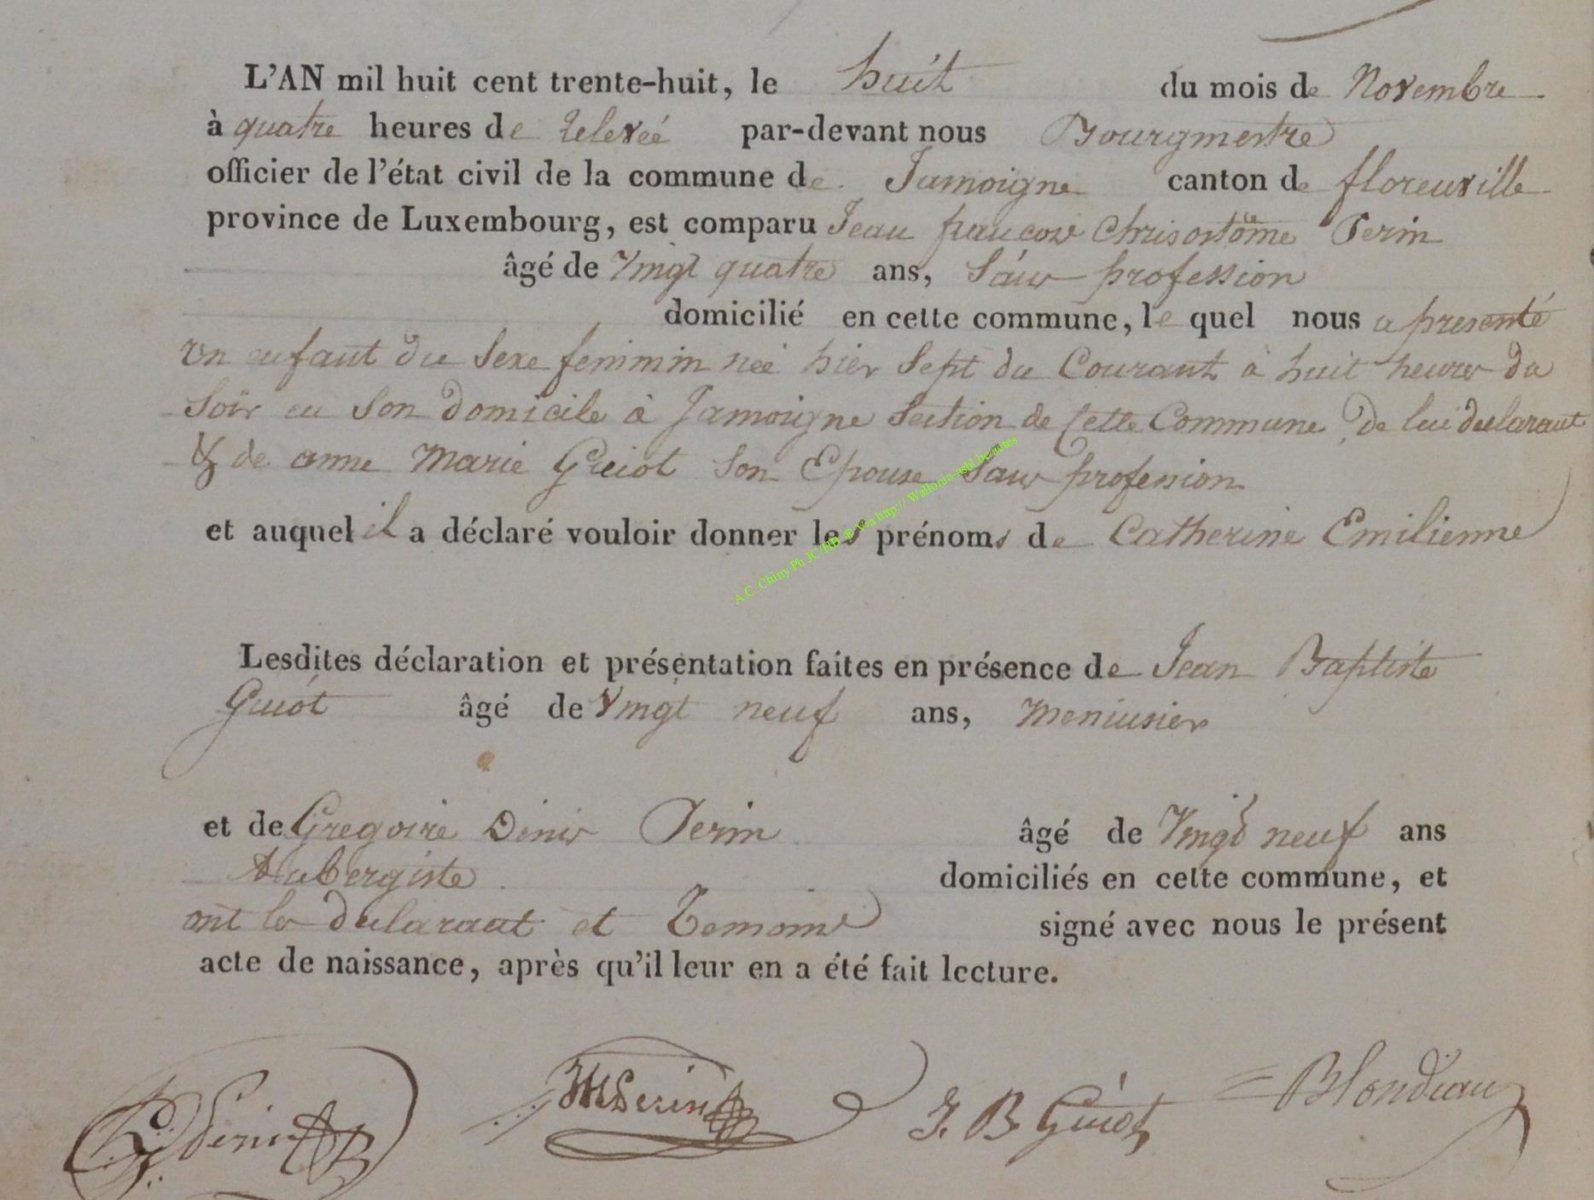 L'AN mil huit cent trente-huit, le huit du mois de Novembre
à quatre heures de releveé par-devant nous Bourgmestre
officier de l'état civil de la commune de Jamoigne canton de florenville
province de Luxembourg, est comparu Jean francois Chrisostôme Perin
âgé de Vingt quatre ans, Sans profession
domicilié en cette commune, le quel nous a presenté
un enfant du Sexe feminin neé hier Sept du Courant à huit heures du
Soir en Son domicile à Jamoigne Section de Cette Commune, de lui declarant
& de anne Marie Guiot Son Epouse Sans profession
et auquel il a déclaré vouloir donner les prénoms de Catherine Emilienne
A.C. Chiny Ph JC
Lesdites déclaration et présentation faites en présence de Jean Baptiste
Guiot âgé de Vingt neuf ans, Meniusier
et de Gregoire Denis Perin âgé de Vingt neuf ans
Aubergiste domiciliés en cette commune, et
ont les declarant et Temoins signé avec nous le présent
acte de naissance, après qu'il leur en a été fait lecture.
Perin J. B. Guiot Blondiau